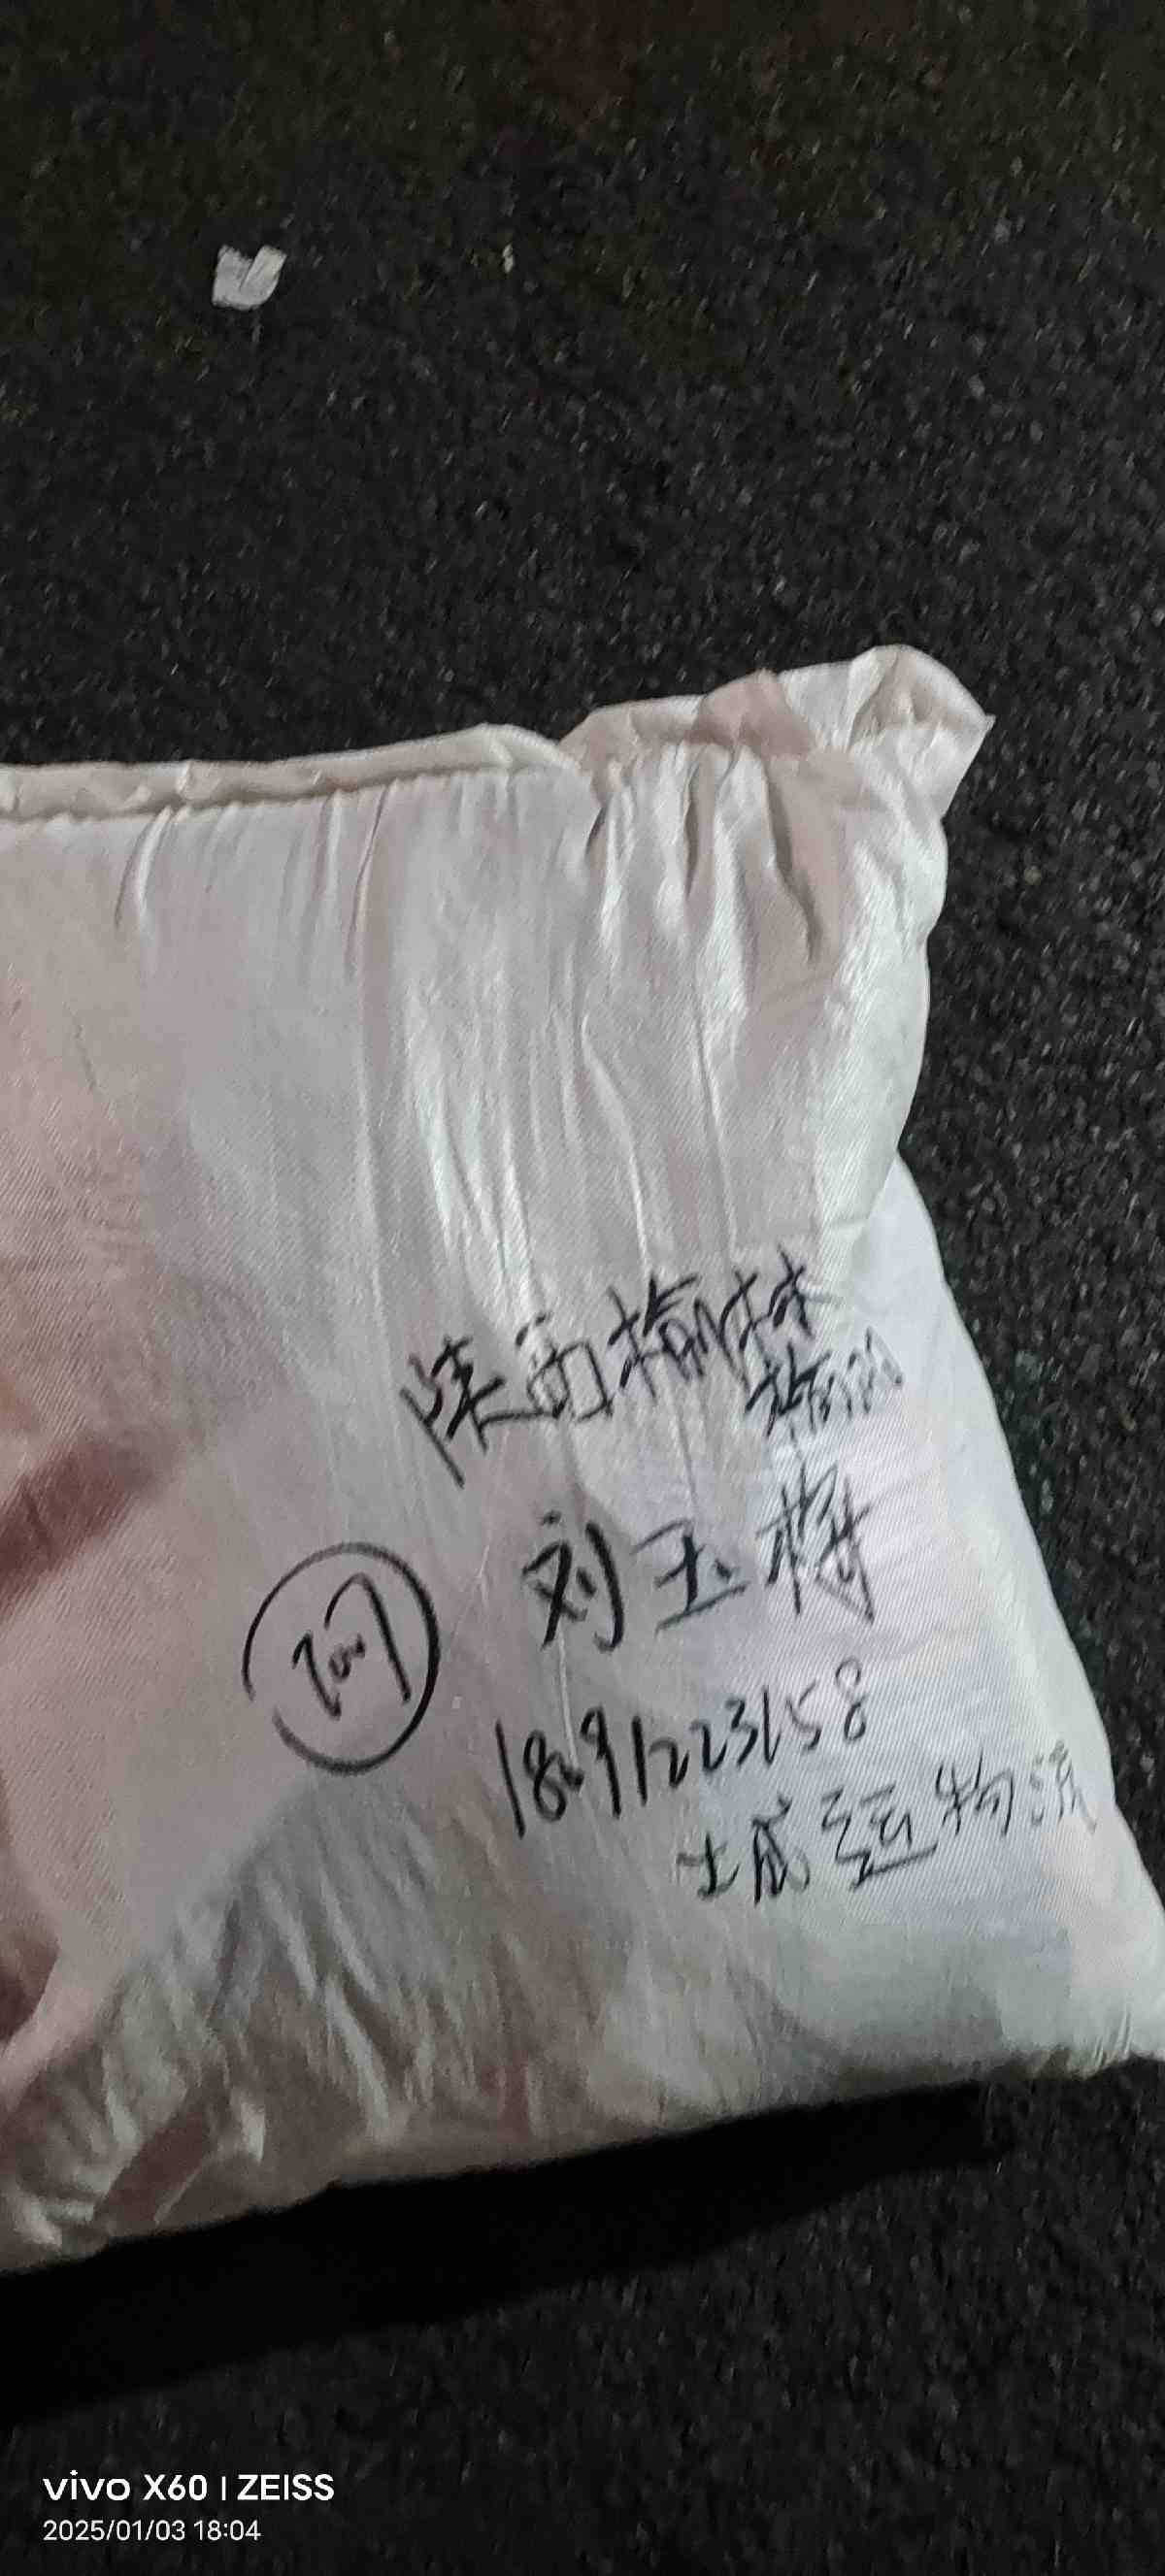 陕西榆林
刘玉梅
18291223158
物流
vivo X60 | ZEISS
2025/01/03 18:04